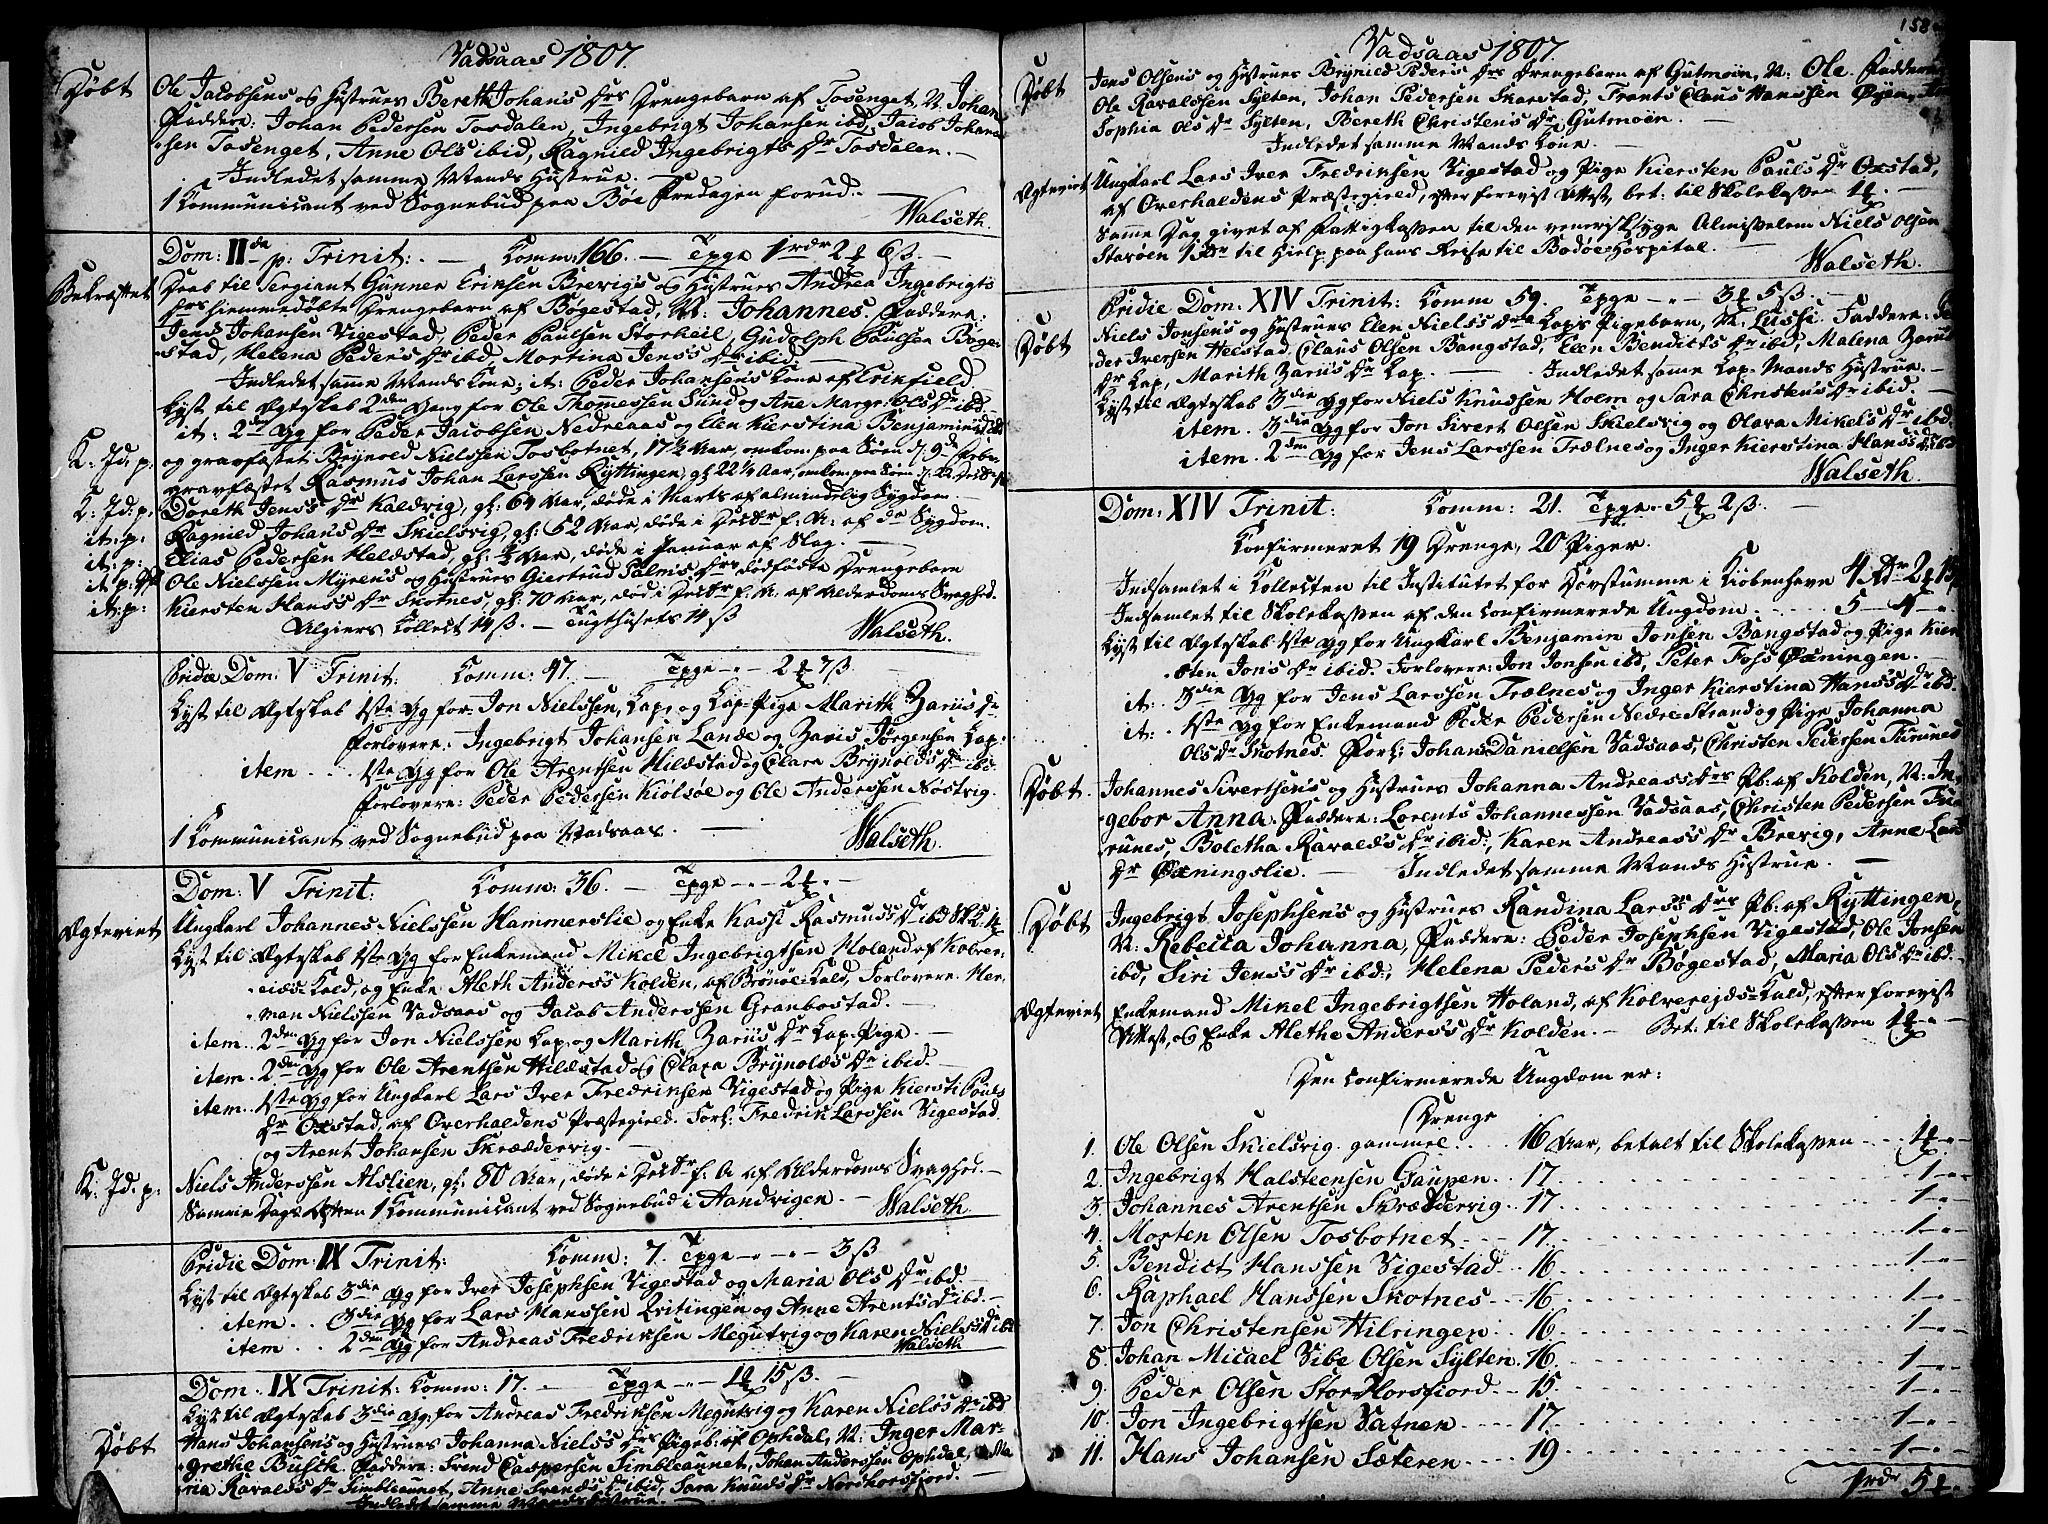 Vadsaas 1807.
Døbt
Ole Jacobsens og Hustrues Bereth Johans Drs Drengebarn af Tosenget, N: Johan
Faddere: Johan Pedersen Tosdalen, Ingebrigt Johansen ibd, Jacob Johan-
sen Tosenget, Anne Ols ibid, Ragnild Ingebrigts Dr Tosdalen. —
Indledet samme Mands Hustrue. —
1 Kommunicant ved Sognebud paa Bøe Fredagen forud. —
Walseth.
Dom: II de p: Trinit: — Komm: 166. — Tpge 1 rdr 2 6 ß. —
Bekræftet
Daab til Sergiant Gunner Eriksen Brevigs og Hustrues Andrea Ingebrigts
Drs hiemmedøbte Drengebarn af Bøgestad, N: Johannes. Faddere:
Jens Johansen Vigestad, Peder Paulsen Storheil, Gudolph Paulsen Bøge-
stad, Helena Peders Dr ibd, Martina Jens's Dr ibid: —
Indledet samme Mands Kone; it: Peder Johansens Kone af Trinfield.
Lyst til Ægteskab 2den Gang for Ole Thomessen Sund og Ane Margr: Ols Dr ibd.
it: 2den Gg for Peder Jacobsen Nedreaas og Elen Kierstina Benjamins Dr ibd
K: Jd: p:
og gravfæstet Brynold Nielsen Tosbotnet, 17½ Aar, omkom paa Søen d. 9de
gravfæstet Rasmus Johan Larssen Ryttingen, gl: 22¼ Aar, omkom paa Søen d. 22
K: Jd: p:
Doreth Jens's Dr Kaldvig, gl: 64 Aar, døde i Marts af almindelig Sygdom. —
it: p:
Ragnild Johans Dr Skielsvig, gl: 62 Aar, døde i Decbr f. A: af Do Sygdom.
it: p:
Elias Pedersen Heldstad, gl: ¾ Aar, døde i Januar af Slag. —
it: p:
Ole Nielssen Myren's og Hustrues Giertrud Palms Drs dødfødte Drengebarn
it: p:
Kiersten Hans's Dr Skotnes, gl: 70 Aar, død i Decbr f. A: af Alderdoms Svaghed.
Algiers Collect 14 ß. — Tugthusets 14 ß
Walseth.
Pridie Dom: V Trinit: Komm: 47. — Tpge -"- 2 7 ß. —
Lyst til Ægteskab 1ste Gg for Jon Nielssen, Lap, og Lap-Pige Marith Zariis Dr
Forlovere: Ingebrigt Johansen Lande og Zaris Jørgensen Lap:
item .. 1ste Gg for Ole Arentsen Hildstad og Clara Brynolds Dr ibid.
Forlovere: Peder Pedersen Kiølsøe og Ole Anderssen Nøstvig.
1 Kommunicant ved Sognebud paa Vadsaas. —
Walseth.
Dom: V Trinit. Komm: 36. — Tpge -"- 2 "-
Ægteviet
Ungkarl Johannes Nielssen Hammerslie og Enke Kasti Rasmus's Dr ibd
Lyst til Ægteskab 1ste Gg for Enkemand Mikel Ingebrigtsen Holand af Kolver-
eids-Kald, og Enke Aleth Anders's Kolden, af Brønøe Kald, Forlovere Her-
man Nielssen Vadsaas og Jacob Anderssen Granbostad. —
item.. 2den Gg for Jon Nielssen Lap og Marith Zariis Dr Lap-Pige. —
item. 2den Gg for Ole Arentsen Hildstad og Clara Brynolds Dr ibid. —
item.. 1ste Gg for Ungkarl Lars Iver Fredriksen Vigestad og Pige Kiersti Pouls
Dr Oxstad, af Overhaldens Præstegield. Forl: Fredrik Larssen Vigestad
og Arent Johansen Skræddervig. —
K: Jd: p:
Niels Anderssen Aslien, gl: 80 Aar, døde i Decbr f. A. af Alderdoms Svaghed. —
Samme Dags Aften 1 Kommunicant ved Sognebud i Aandvigen. — Walseth
Pridie Dom: IX Trinit: Komm: 7. Tpge -"- "- 3 ß
Lyst til Ægteskab 3die Gg for Iver Josephsen Vigestad og Maria Ols Dr ibd. —
item .. 3die Gg for Lars Hanssen Qvitingen og Anne Arents Dr ibd. —
item .. 2den Gg for Andreas Fredriksen Megutvig og Karen Niels's Dr ibd
Walseth
Dom: IX Trinit: Komm: 17. — Tpge -"- 1 15 ß. —
Lyst til Ægteskab 3die Gg: for Andreas Fredriksen Megutvig og Karen Niels's Dr ibd
Døbt
Hans Johansens og Hustrues Johanna Niels's Drs Pigeb: af Ophdal, N: Inger Mar-
grethe Busch. Faddere: Svend Caspersen Simbleaunet, Johan Anderssen Ophdal, Ma-
ria Ravalds Dr Simbleaunet, Anne Svends Dr ibid, Sara Knuds Dr Nordhorsfiord. —
Indledet samme Mands Hustrue. —
158
Vadsaas 1807.
Døbt
Jens Olsens og Hustrues Brynild Peders Drs Drengebarn af Gutmoen, N: Ole. Faddere
Ole Ravaldsen Sylten, Johan Pedersen Skarstad, Frants Claus Hanssen Øyen,
Sophia Ols Dr Sylten, Bereth Christens Dr Gutmoen. —
Indledet samme Mands Kone. —
Ægteviet
Ungkarl Lars Iver Fredriksen Vigestad og Pige Kiersten Pauls Dr Oxstad,
af Overhaldens Præstegield, efter forevist Attest, bet: til Skolekassen 1 . —
Samme Dag givet af Fattigkassen til den venerisksyge Almisselem Niels Olsen
Starøen 1 Rdr til Hielp paa hans Reise til Bodøe Hospital. —
Walseth.
Pridie Dom: XIV Trinit: Komm 59. Tpge -"- 3 5 ß. —
Døbt
Niels Jonsens og Hustrues Elen Niels's Drs Laps Pigebarn, N: Lussi. Faddere: Pe-
der Iversen Heestad, Claus Olsen Bangstad, Elen Bendicts Dr ibid, Malena Zariis
Dr Lap, Marith Zariis Dr Lap. — Indledet same Lap-Mands Hustrue. —
Lyst til Ægteskab 3die Gg for Niels Knussen Holm og Sara Christens Dr ibid. —
item. 3die Gg for Jon Sivert Olsen Skielsvig og Olava Mikels Dr ibd.
item. 2den Gg for Jens Larssen Trælnes og Inger Kierstina Hans's Dr ibd
Walseth.
Dom: XIV Trinit: Komm: 21. Tpge -"- 5 2 ß. —
Confirmeret 19 Drenge, 20 Piger.
Indsamlet i Collecten til Institutet for Døvstumme i Kiøbenhavn 4 Rdr 2 15
Indsamlet til Skolekassen af den confirmerede Ungdom. . . . . 5 - 4 -"-
Lyst til Ægteskab 1ste Gg for Ungkarl Benjamin Jonsen Bangstad og Pige Kier-
sten Jons Dr ibid. Forlovere: Jon Jonsen ibd, Peter Foss Øxningen. —
it: . 3die Gg for Jens Larssen Trælnes og Inger Kierstina Hans's Dr ibd.
it: . 1ste Gg for Enkemand Peder Pedersen Nedre-Strand og Pige Johanna
Ols Dr Skotnes. Forl: Johan Danielsen Vadsaas, Christen Pedersen Furuned
Døbt.
Johannes Sivertsen's og Hustrues Johanna Andreas's Drs Pb: af Kolden, N: In-
gebor Anna. Faddere: Lorents Johannessen Vadsaas, Christen Pedersen Fu-
runes, Boletha Ravalds Dr ibid:, Karen Andreas's Dr Brevig, Anne Lars
Dr Øxningslie. — Indledet samme Mands Hustrue. —
Døbt
Ingebrigt Josephsen's og Hustrues Randina Lars's Drs Pb: af Ryttingen,
N: Rebecca Johanna, Faddere: Peder Josephsen Vigestad, Ole Jonsen
ibd, Siri Jens's Dr ibd:, Helena Peder's Dr Bøgestad, Maria Ols Dr ibd. —
Ægteviet
Enkemand Mikel Ingebrigtsen Holand, af Kolverejds-Kald, efter forevist
Attest, og Enke Alethe Anders's Dr Kolden. — Bet: til Skolekassen 1 "-
Den confirmerede Ungdom er:
Drenge
1. Ole Olsen Skielsvig gammel . . . 16 Aar, betalt til Skolekassen - - - 1 -"-
2. Ingebrigt Halsteensen Gaupen - - 17 . . . 1 -"-
3. Johannes Arentsen Skræddervig . . 17 . . . 1 -"-
4. Morten Olsen Tosbotnet - - - 17 . . . 1 -"-
5. Bendict Hanssen Vigestad . . 16 . . . 1 -"-
6. Raphael Hanssen Skotnes - - 16 . . . 1 -"-
7. Jon Christensen Hilringen . . 16 . . . 1 -"-
8. Johan Micael Vibe Olsen Sylten. 16 . . . 1 -"-
9. Peder Olsen Stor Horsfiord - - 15 . . . 1 -"-
10. Jon Ingebrigtsen Vatnen - - - 17 . . . 1 -"-
11. Hans Johansen Sæteren - - - - 19 . . . 1 -"-
1 rdr 5